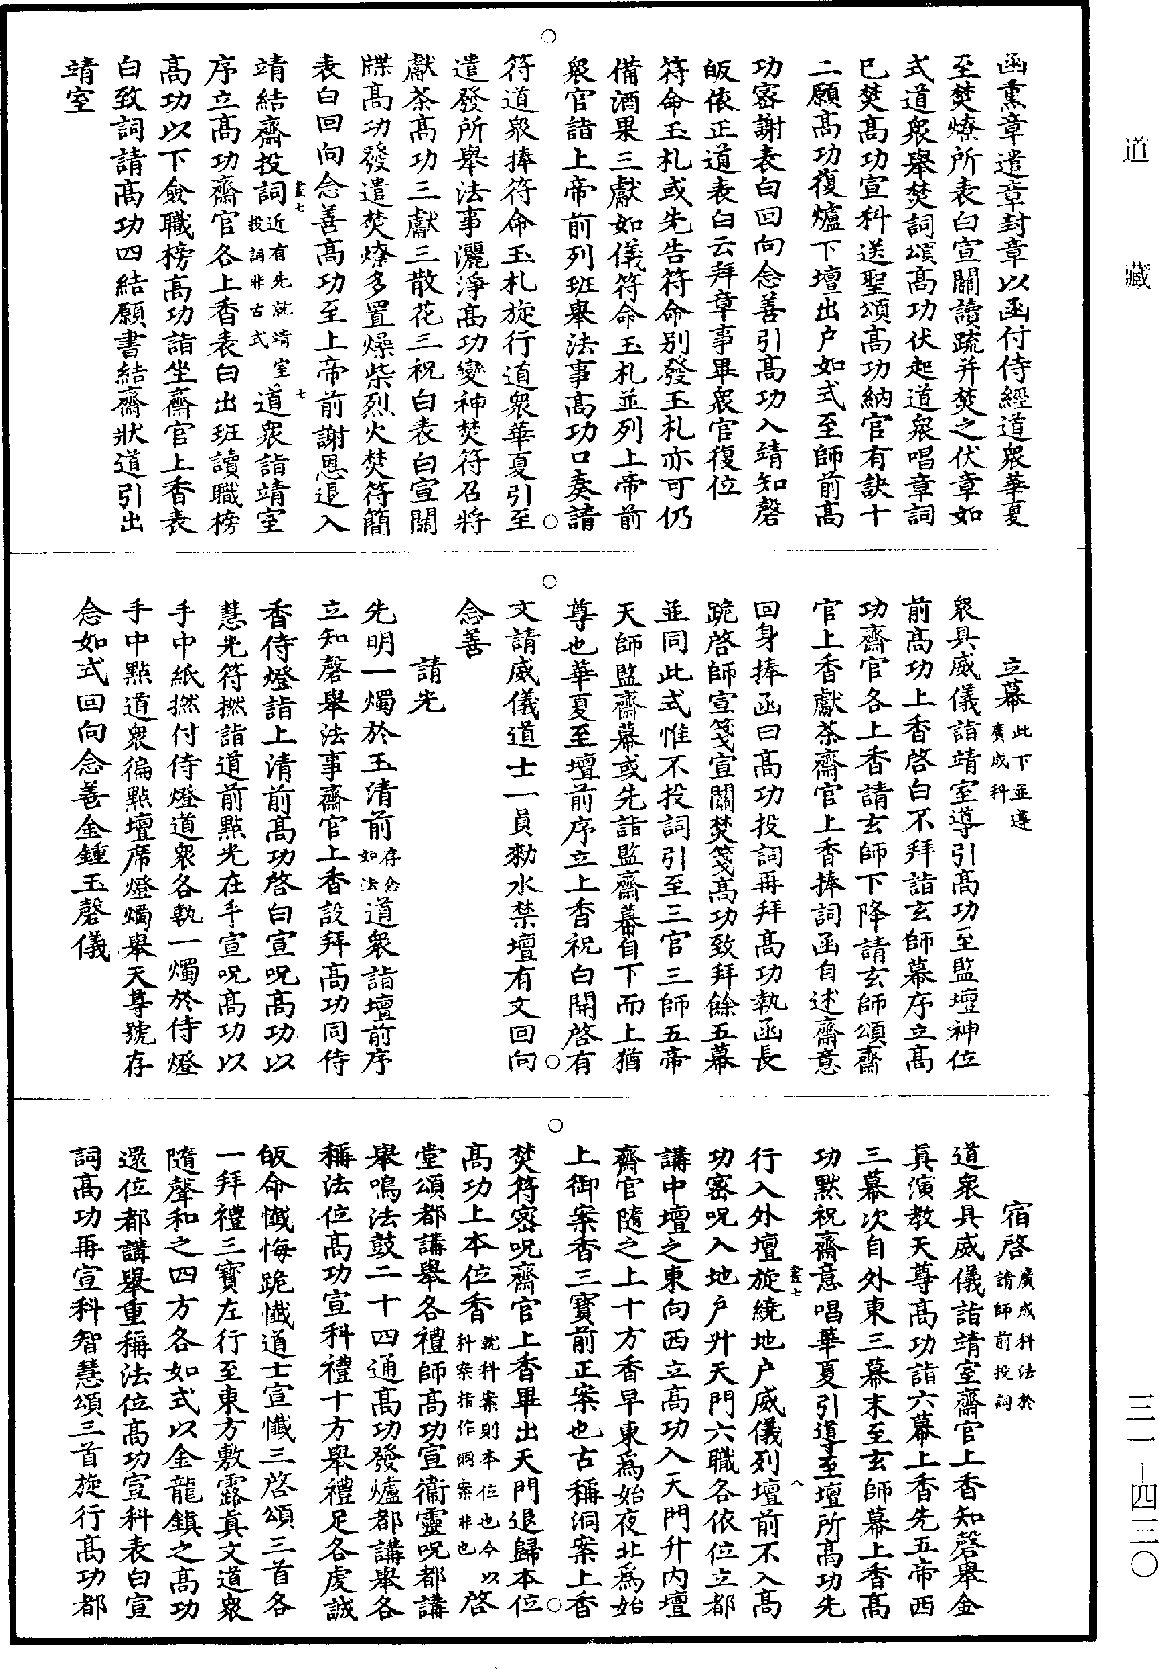 函熏章遣章封章以函付侍經道衆華夏
至焚燎所表白宣關讀疏并焚之伏章如
式道衆舉焚詞頌高功伏起道衆唱章詞
已焚高功宣科送聖頌高功納官有訣十
二願高功復爐下壇出户如式至師前高
功密謝表白回向念善引高功入靖知磬
皈依正道表白云拜章事畢衆官復位
符命玉札或先告符命别發玉札亦可仍
備酒果三獻如儀符命玉札並列上帝前
衆官詣上帝前列班舉法事高功口奏請
符道衆捧符命玉札旋行道衆華夏引至
遣發所舉法事灑淨高功變神焚符召將
獻茶高功三獻三散花三祝白表白宣關
牒高功發遣焚燎多置燥柴烈火焚符簡
表白回向念善高功至上帝前謝恩退入
靖結齋投詞近有先就靖室投詞非古式道衆詣靖室
序立高功齋官各上香表白出班讀職榜
高功以下僉職榜高功詣坐齋官上香表
白致詞請高功四結願書結齋狀道引出
靖室
立幕此下並遵廣成科
衆具威儀詣靖室導引高功至監壇神位
前高功上香啓白不拜詣玄師幕序立高
功齋官各上香請玄師下降請玄師頌齋
官上香獻茶齋官上香捧詞函自述齋意
回身捧函曰高功投詞再拜高功執函長
跪啓師宣箋宣關焚箋高功致拜餘五幕
並同此式惟不投詞引至三官三師五帝
天師監齋幕或先詣監齋幕自下而上猶
尊也華夏至壇前序立上香祝白開啓有
文請威儀道士一員勑水禁壇有文回向
念善
請光
先明一燭於玉清前存念如法道衆詣壇前序
立知磬舉法事齋官上香設拜高功同侍
香侍燈詣上清前高功啓白宣呪高功以
慧光符撚詣道前點光在手宣呪高功以
手中紙撚付侍燈道衆各執一燭於侍燈
手中點道衆徧點壇席燈燭舉天尊號存
念如式回向念善金鍾玉磬儀
宿啓廣成科法於請師前投詞
道衆具威儀詣靖室齋官上香知磬舉金
真演教天尊高功詣六幕上香先五帝西
三幕次自外東三幕末至玄師幕上香高
功默祝齋意唱華夏引道至壇所高功先
行入外壇旋繞地户威儀列壇前不入高
功密呪入地户升天門六職各依位立都
講中壇之東向西立高功入天門升内壇
齋官隨之上十方香早東爲始夜北爲始
上御案香三寶前正案也古稱洞案上香
焚符密呪齋官上香畢出天門退歸本位
高功上本位香就科案則本位也今以科案指作洞案非也啓
堂頌都講舉各禮師高功宣衞靈呪都講
舉鳴法鼓二十四通高功發爐都講舉各
稱法位高功宣科禮十方舉禮足各虔誠
皈命懺悔跪懺道士宣懺三啓頌三首各
一拜禮三寶左行至東方敷露真文道衆
隨聲和之四方各如式以金龍鎮之高功
還位都講舉重稱法位高功宣科表白宣
詞高功再宣科智慧頌三首旋行高功都
道藏
三一—四三〇